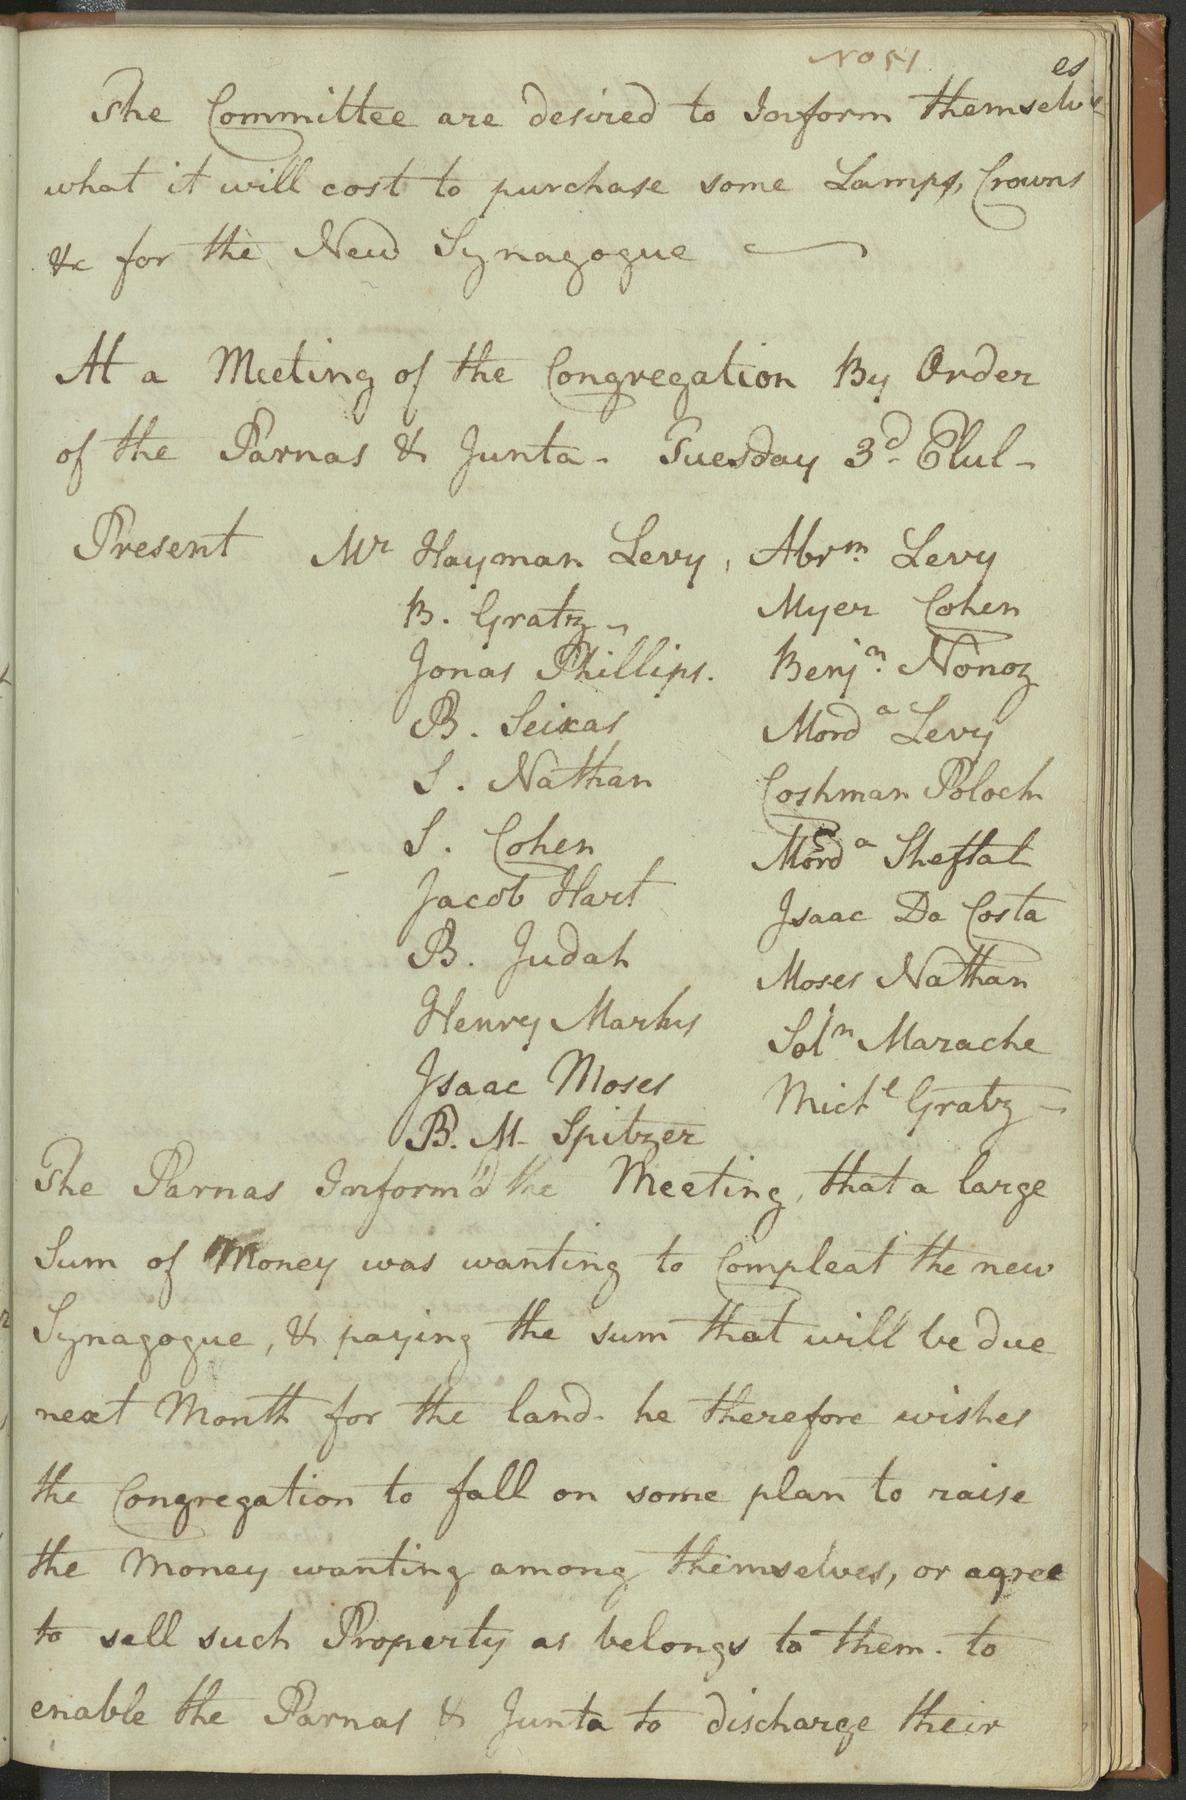 No 51
The Committee are desired to Inform themselves
what it will cost to purchase some Lamps, Crowns
&c for the New Synagogue
At a Meeting of the Congregation By Order
of the Parnas & Junta - Tuesday 3d. Elul -
Present Mr Hayman Levy, Abrm. Levy
B. Gratz - Myer Cohen
Jonas Phillips. Benjn. Nonoz
B. Seixas Morda Levy
S. Nathan Coshman Poloch
S. Cohen Morda Sheftal
Jacob Hart Isaac Da Costa
B. Judah Moses Nathan
Henry Marks Soln Marache
Isaac Moses Michl Gratz -
B. M. Spitzer
The Parnas Inform'd the Meeting, that a large
Sum of Money was wanting to Compleat the new
Synagogue, & paying the sum that will be due
next Month for the land. he therefore wishes
the Congregation to fall on some plan to raise
the Money wanting among themselves, or agree
to sell such Property as belongs to them. to
enable the Parnas & Junta to discharge their